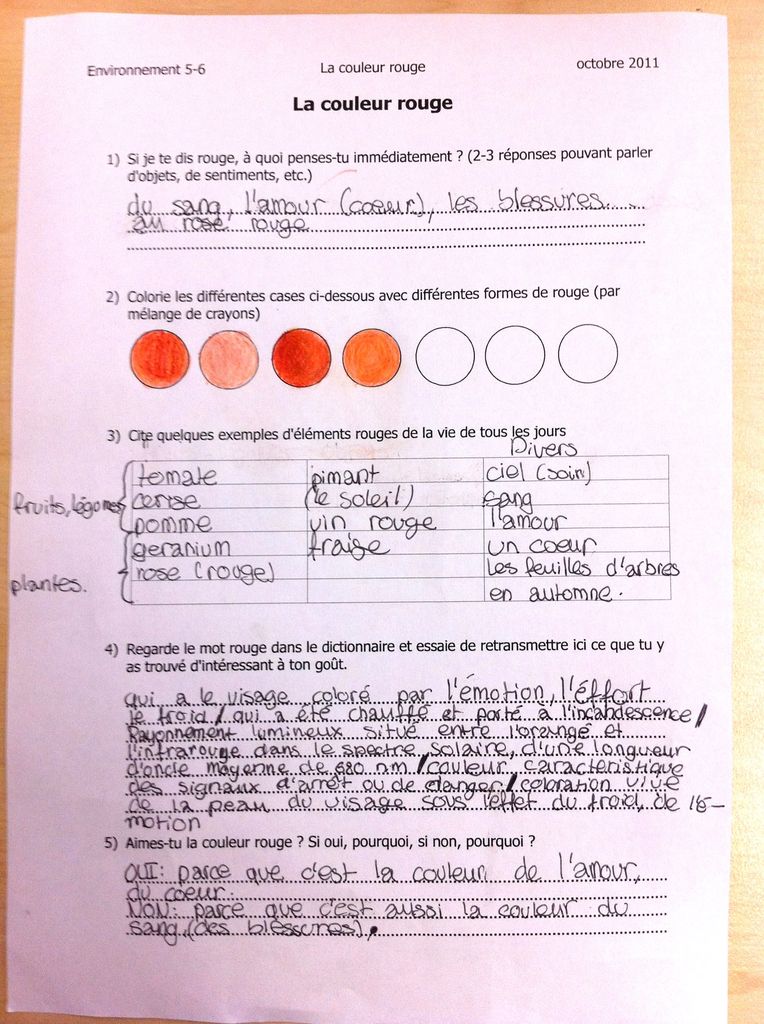 Environnement 5-6 La couleur rouge octobre 2011
La couleur rouge
1) Si je te dis rouge, à quoi penses-tu immédiatement ? (2-3 réponses pouvant parler
d'objets, de sentiments, etc.)
du sang, l'amour (coeur), les blessures
au rose rouge
2) Colorie les différentes cases ci-dessous avec différentes formes de rouge (par
mélange de crayons)
3) Cite quelques exemples d'éléments rouges de la vie de tous les jours
Divers
tomate pimant ciel (soir)
fruits, légomes cerise (le soleil) sang
pomme vin rouge l'amour
geranium fraise un coeur
plantes. rose (rouge) les feuilles d'arbres
en automne.
4) Regarde le mot rouge dans le dictionnaire et essaie de retransmettre ici ce que tu y
as trouvé d'intéressant à ton goût.
qui a le visage coloré par l'émotion, l'éffort
le froid / qui a été chauffé et porté à l'incandescence /
Rayonnement lumineux situé entre l'orangé et
l'infrarouge dans le spectre solaire, d'une longueur
d'onde moyenne de 680 nm / couleur caractéristique
des signaux d'arrêt ou de danger / coloration vive
de la peau du visage sous l'effet du froid, de l'é-
motion
5) Aimes-tu la couleur rouge ? Si oui, pourquoi, si non, pourquoi ?
OUI: parce que c'est la couleur de l'amour,
du coeur.
NON: parce que c'est aussi la couleur du
sang, (des blessures).